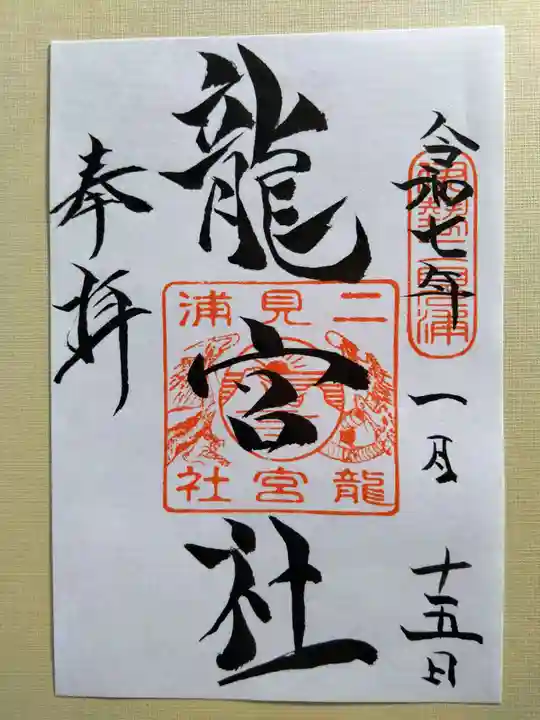 令和七年
一月
十五日
伊勢二見浦
龍宮社
二見浦
龍宮社
奉拝